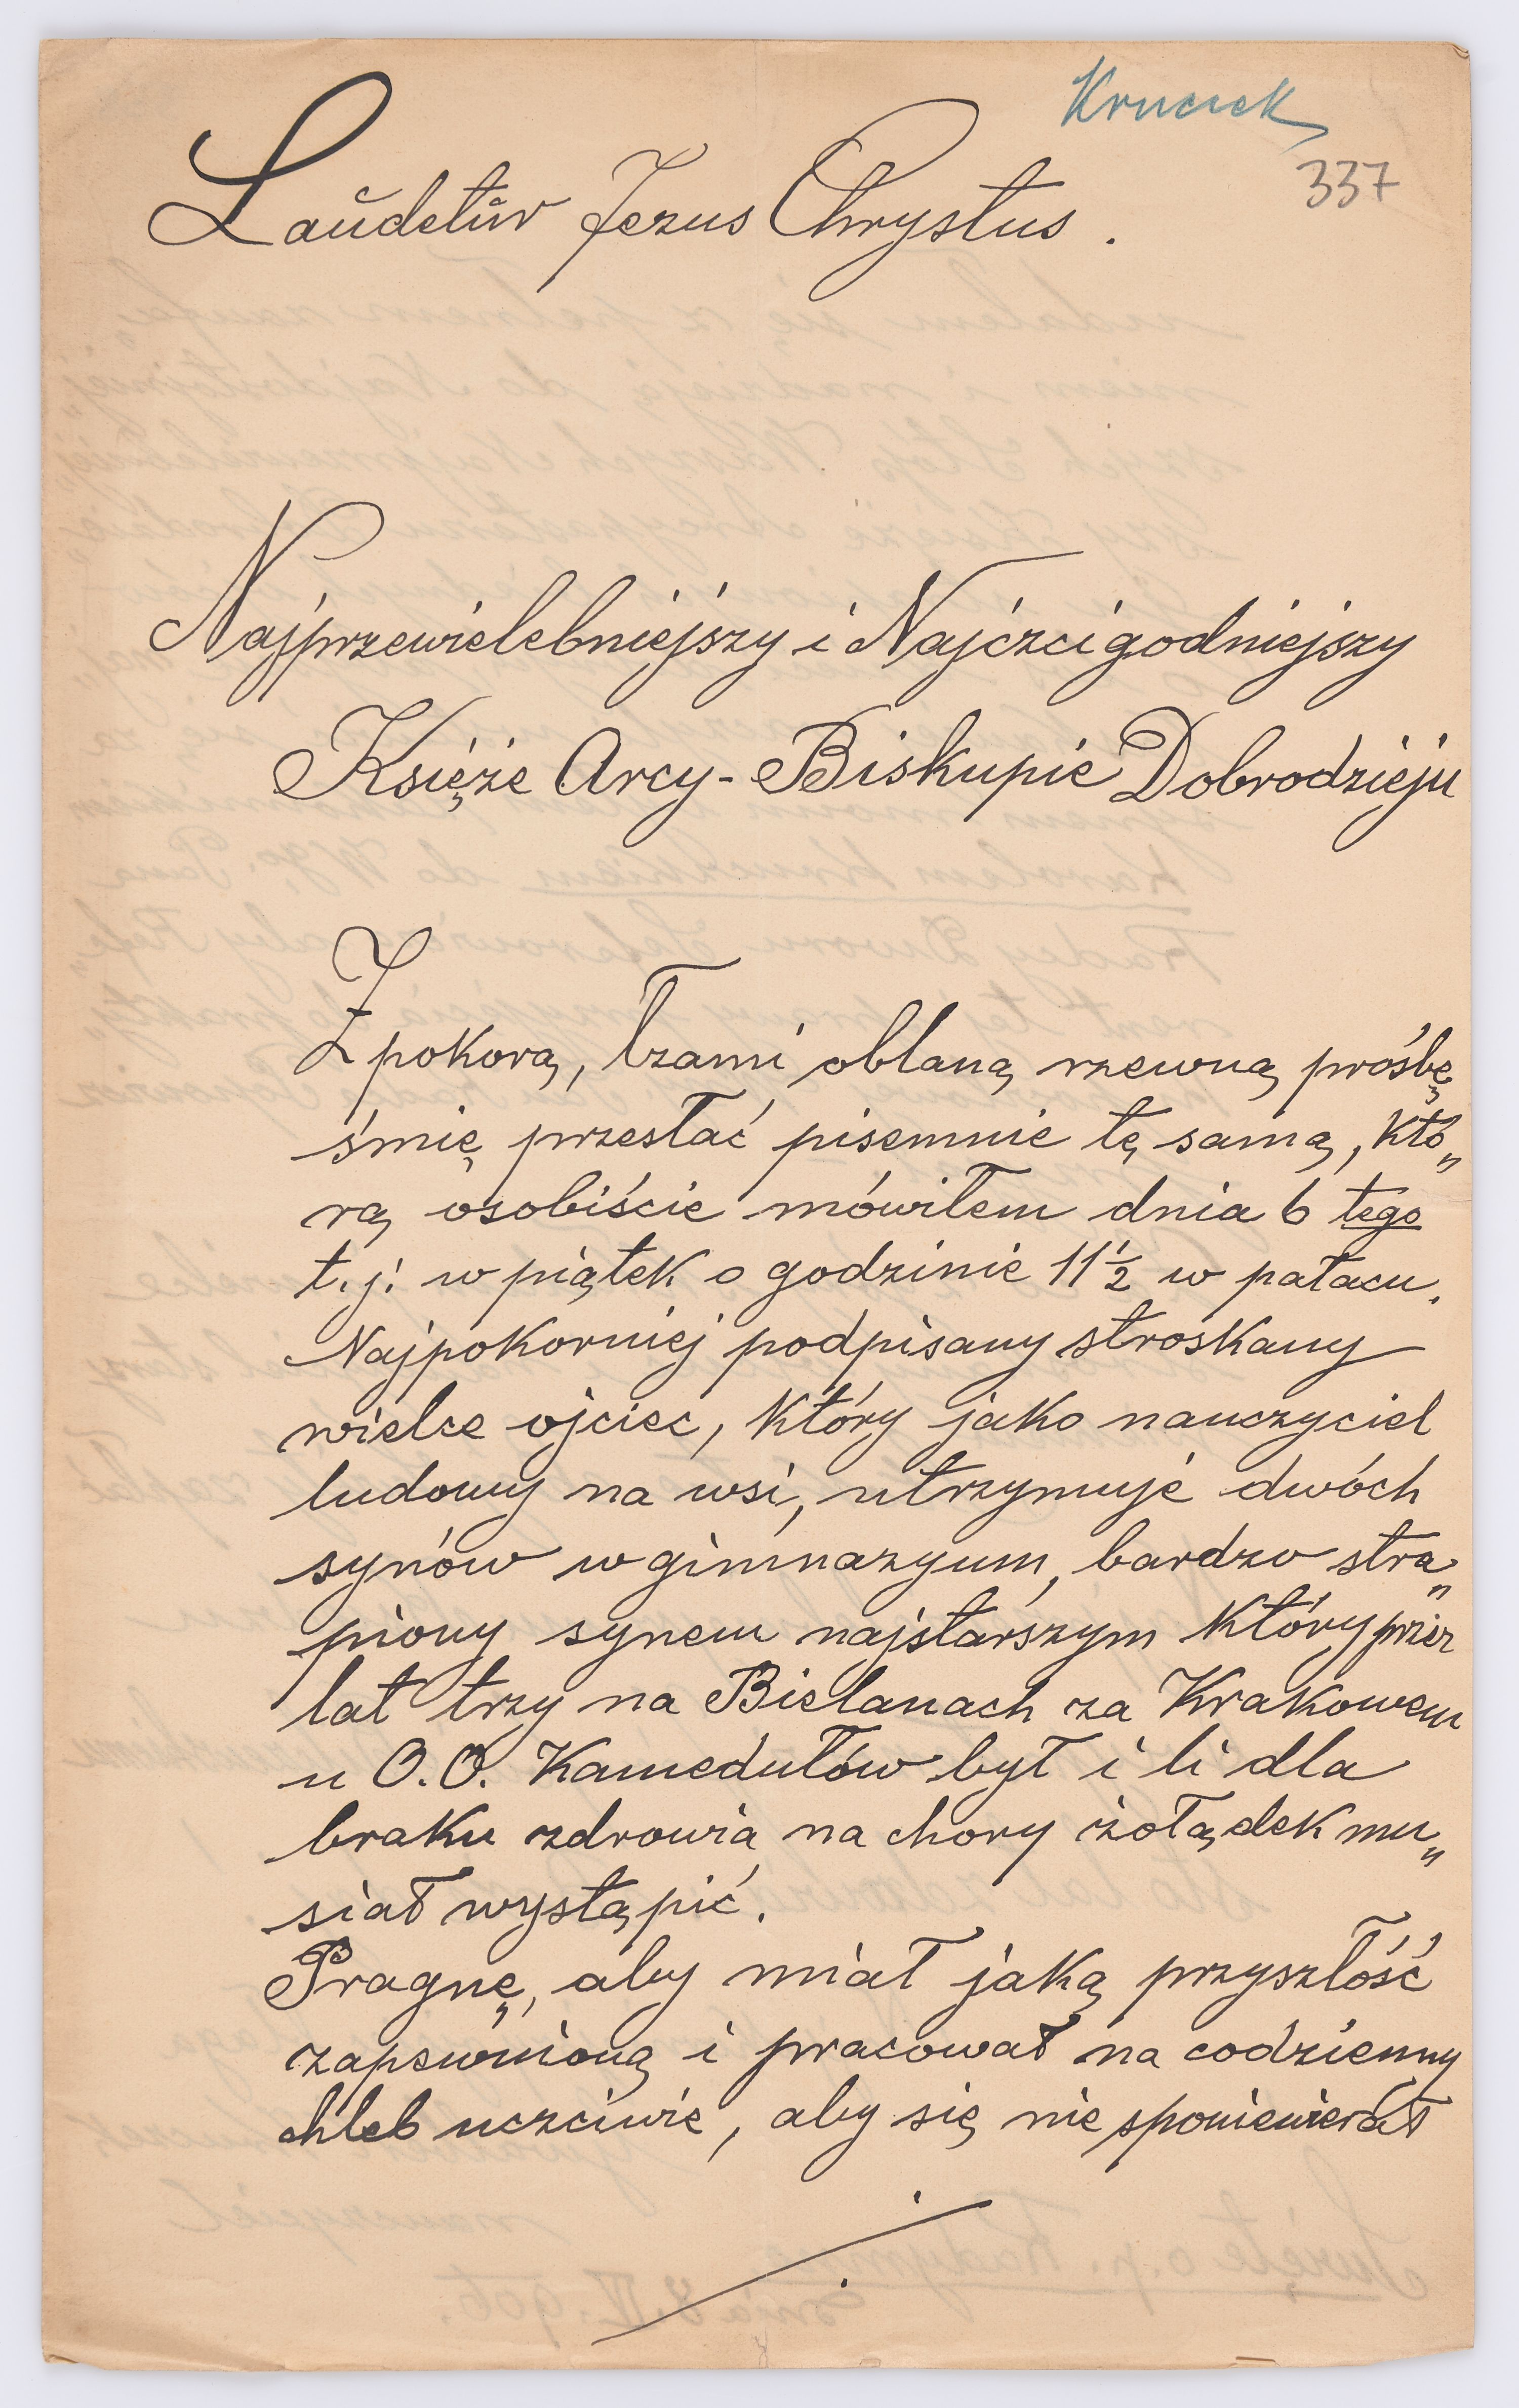 Kruczek
337
Laŭdetŭr Jezus Chrystus.
Najprzewielebniejszy i Najczcigodniejszy
Księże Arcy-Biskupie Dobrodzieju
Z pokorą, łzami oblaną rzewną prośbę
śmię przesłać pisemnie tę samą, któ„
rą osobiście mówiłem dnia 6 tego
t.j. w piątek o godzinie 11½ w pałacu.
Najpokorniej podpisany stroskany
wielce ojciec, który jako nauczyciel
ludowy na wsi, utrzymuje dwóch
synów w gimnazyum, bardzo stra„
piony synem najstarszym który przez
lat trzy na Bielanach za Krakowem
u O.O. Kamedułów był i li dla
braku zdrowia na chory żołądek mu„
siał wystąpić.
Pragnę, aby miał jaką przyszłość
zapewnioną i pracował na codzienny
chleb uczciwie, aby się nie sponiewierał